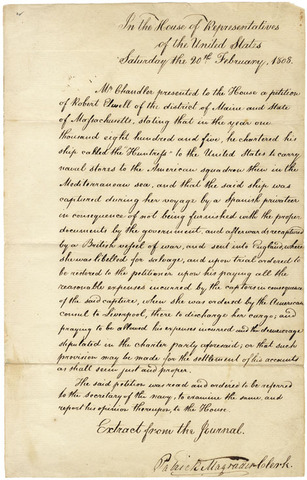 In the House of Representatives
of the United States
Saturday the 20th February, 1808.
Mr. Chandler presented to the House a petition
of Robert Elwell of the district of Maine and State
of Massachusetts, stating that in the year one
thousand eight hundred and five, he chartered his
ship called the Huntress to the United States to carry
naval stores to the American squadron then in the
Mediterranean sea, and that the said ship was
captured during her voyage by a Spanish privateer
in consequence of not being furnished with the proper
documents by the government, and afterwards recaptured
by a British vessel of war, and sent into England, where
she was libelled for salvage, and upon trial ordered to
be restored to the petitioner upon his paying all the
reasonable expenses incurred by the captors in consequence
of the said capture, when she was ordered by the American
consul to Liverpool, there to discharge her cargo; and
praying to be allowed his expenses incurred and the demurrage
stipulated in the charter party aforesaid; or that such
provision may be made for the settlement of his accounts
as shall seem just and proper.
The said petition was read and ordered to be referred
to the secretary of the navy, to examine the same, and
report his opinion thereupon to the House.
Extract from the Journal.
Patrick Magruder Clerk.